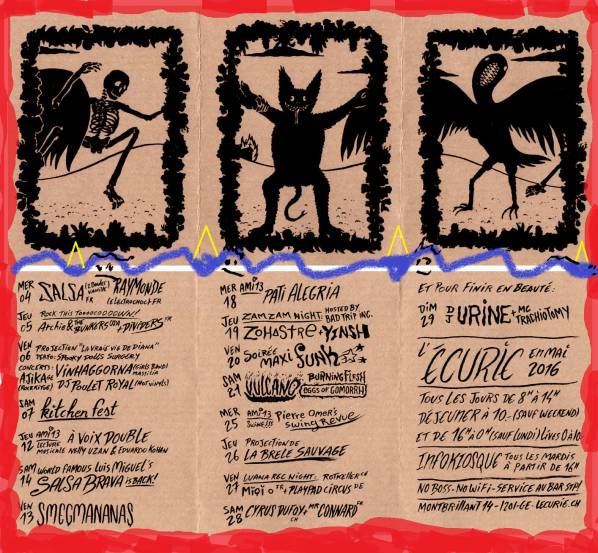 MER 04 SALSA RAYMONDE FR (ELECTROCHOC) FR
JEU 05 ROCK THIS TOOOOOOODOWN!
Archie & THE BUNKERS & DIVIDERS FR
VEN 06 PROJECTION "LA VRAIE VIE DE DIANA"
TEKNO: SPOOKY DOLLS SURGERY
CONCERTS: VINHAGGORNA (GIRLS BAND)
AJIKA DJ POULET ROYAL (MOTWINETS)
SAM 07 kitchen fest
JEU 12 AMI13 LECTURE MUSICALE À VOIX DOUBLE
NELLY UZAN & EDUARDO KOHAN
SAM 14 WORLD FAMOUS LUIS MIGUEL'S
SALSA BRAVA IS BACK!
VEN 13 SMEGMANANAS
MER 18 AMI13 PATI ALEGRIA
JEU 19 ZAM ZAM NIGHT: HOSTED BY BAD TRIP INC.
ZOHASTRE + YINSH
VEN 20 SOIRÉE MAXI FUNK
SAM 21 VULCANO BURNING FLESH
EGGS OF GOMORRH
MER 25 AMI13 Pierre Omer's Swing Revue
JEU 26 PROJECTION DE
LA BRELE SAUVAGE
VEN 27 LUANA REC NIGHT: ROTKELLER
MIOI O TR, PLAYPAD CIRCUS DE
SAM 28 CYRUS DUFOY & MR CONNARD DE
CH
ET POUR FINIR EN BEAUTÉ:
DIM 29 DJ URINE + MC TRACHIOTOMY
L'ÉCURIE EN MAI 2016
TOUS LES JOURS DE 8H À 14H
DEJEUNER À 10.- (SAUF WEEKEND)
ET DE 16H À 0H (SAUF LUNDI) LIVES 0 À 10.-
INFOKIOSQUE TOUS LES MARDIS
À PARTIR DE 16H
NO BOSS - NO WIFI - SERVICE AU BAR SVP!
MONTBRILLANT 14 - 1201 GE - LECURIE.CH